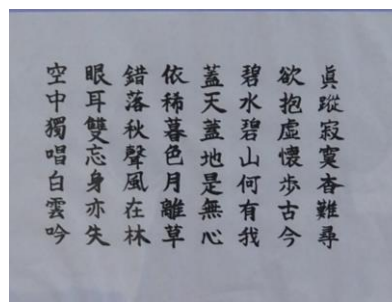 眞蹤寂寞杳難尋
欲抱虛懷步古今
碧水碧山何有我
蓋天蓋地是無心
依稀暮色月離草
錯落秋聲風在林
眼耳雙忘身亦失
空中獨唱白雲吟